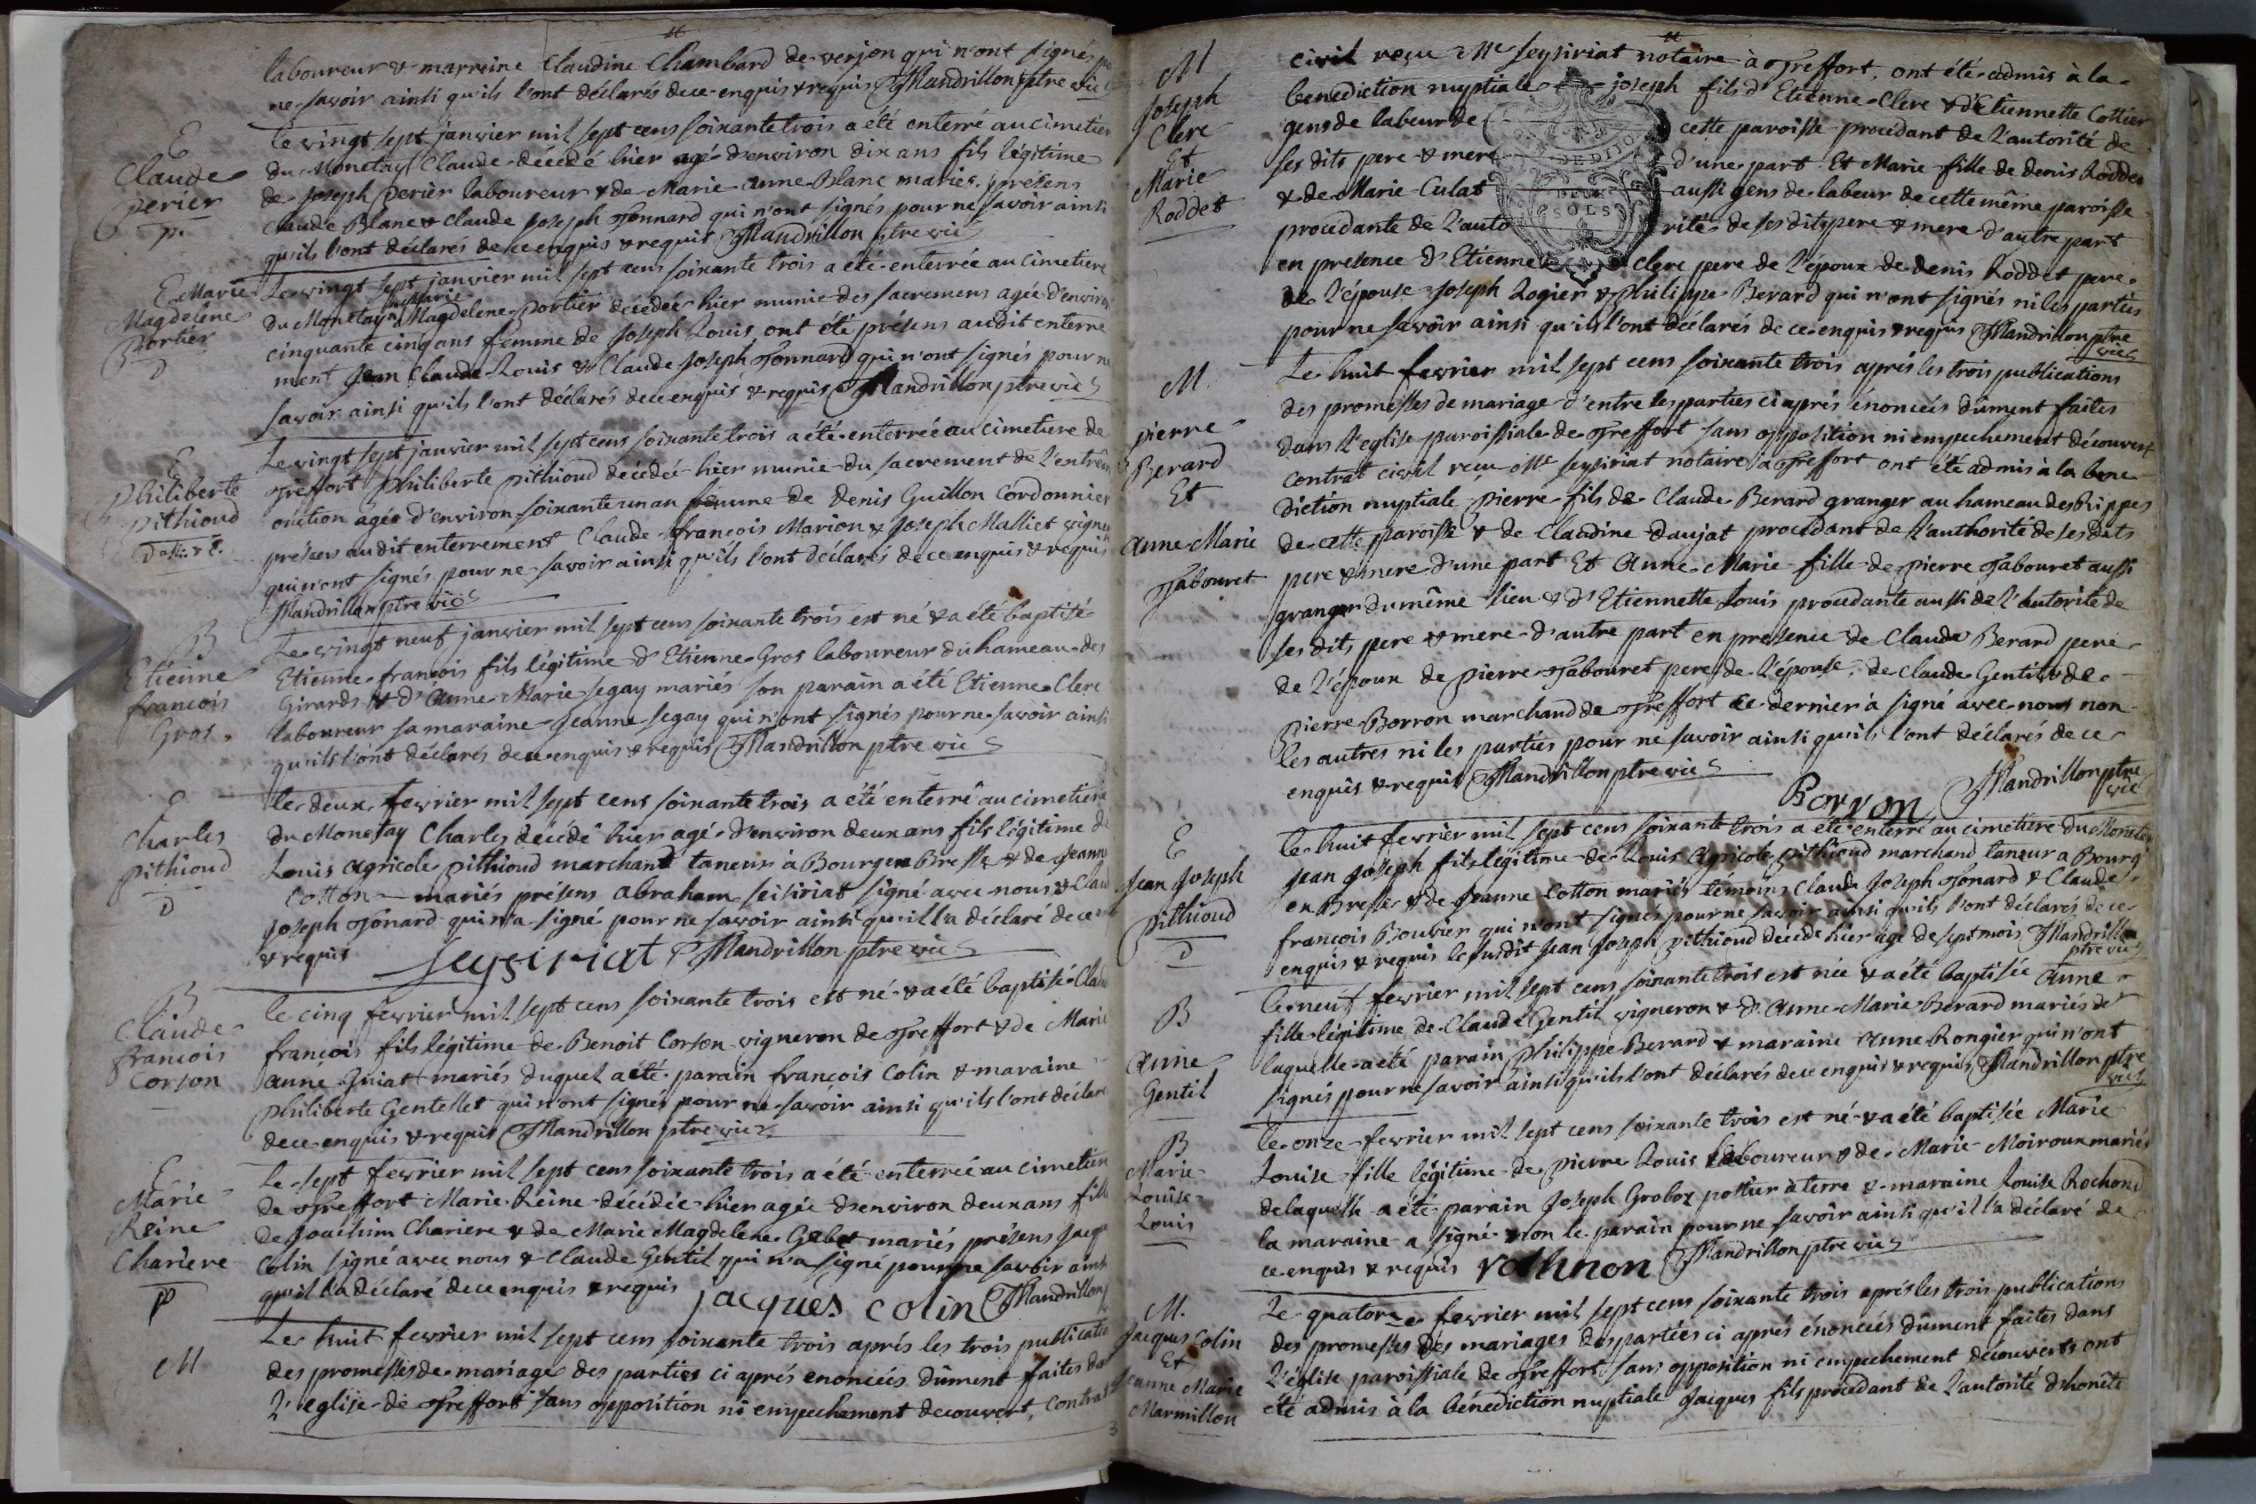 laboureur & marreine Claudine Chambard de verjon qui n'ont signés p
ne savoir ainsi qu'ils l'ont déclarés de ce enquis & requis Mandrillon ptre vic
E
Claude
perier
p.
Le vingt sept janvier mil sept cens soixante trois a été enterré au cimetier
du Monetay Claude décédé hier agé d'environ dix ans fils légitime
de Joseph perier laboureur & de Marie anne Blanc mariés. présens
Claude Blanc & Claude Joseph Tonnard qui n'ont signés pour ne savoir ainsi
qu'ils l'ont déclarés de ce enquis & requis Mandrillon ptre vic
E Marie
Magdelene
Portier
D
Le vingt sept janvier mil sept cens soixante trois a été enterrée au cimetiere
du Monetay Marie Magdelene portier décédée hier munie des sacremens agée d'enviro
cinquante cinq ans femme de Joseph Louis ont été présens audit enterre
ment Jean Claude Louis & Claude Joseph Tonnard qui n'ont signés pour ne
savoir ainsi qu'ils l'ont déclarés de ce enquis & requis Mandrillon ptre vic
E
Philiberte
pithioud
Le vingt sept janvier mil sept cens soixante trois a été enterrée au cimetiere de
Treffort philiberte pithioud décédée hier munie du sacrement de l'extrême
onction agée d'environ soixante un an femme de Denis Guillon cordonnier
présens audit enterrement Claude francois Marion & Joseph Malliet vigner
qui n'ont signés pour ne savoir ainsi qu'ils l'ont déclarés de ce enquis & requis
Mandrillon ptre vic
B
Etienne
francois
Gros.
Le vingt neuf janvier mil sept cens soixante trois est né & a été baptisé
Etienne francois fils légitime d'Etienne Gros laboureur du hameau des
Girards & d'Anne Marie segay mariés son parain a été Etienne Clere
laboureur sa maraine Jeanne segay qui n'ont signés pour ne savoir ainsi
qu'ils l'ont déclarés de ce enquis & requis Mandrillon ptre vic
E
Charles
pithioud
D
le deux fevrier mil sept cens soixante trois a été enterré au cimetiere
du Monetay Charles décédé hier agé d'environ deux ans fils légitime de
Louis agricole pithioud marchand taneur à Bourg en Bresse & de Jeanne
Cotton mariés présens abraham seisiriat signé avec nous & Claud
Joseph Tonard qui n'a signé pour ne savoir ainsi qu'il l'a déclaré de ce
& requis Seysiriat Mandrillon ptre vic
B
Claude
francois
Corson
le cinq fevrier mil sept cens soixante trois est né & a été baptisé Claude
francois fils légitime de Benoit Corson vigneron de Treffort & de Marie
anne Guiat mariés duquel a été parain francois Colin & maraine
philiberte Gentellet qui n'ont signés pour ne savoir ainsi qu'ils l'ont déclaré
de ce enquis & requis Mandrillon ptre vic
E
Marie
Reine
Chariere
p
Le sept fevrier mil sept cens soixante trois a été enterrée au cimetiere
de Treffort Marie Reine décédée hier agée d'environ deux ans fille
de Joachim Chariere & de Marie Magdelene Gabet mariés présens Jacq
Colin signé avec nous & Claude Gentil qui n'a signé pour ne savoir ainsi
qu'il l'a déclaré de ce enquis & requis jacques Colin Mandrillon
M
Le huit fevrier mil sept cens soixante trois aprés les trois publicatio
des promesses de mariage des parties ci aprés enoncées dûment faites da
L'eglise de Treffort sans opposition ni empechement decouvert, contrat
M
Joseph
Clere
Et
Marie
Roddet
civil reçu Me Seysiriat notaire à Treffort, ont été admis à la
benediction nuptiale joseph fils d'Etienne Clere & d'Etiennette Cottier
gens de labeur de cette paroisse procedant de l'autorité de
ses dits pere & mere d'une part Et Marie fille de denis Roddet
& de Marie Culat aussi gens de labeur de cette même paroisse
procedante de l'autorité de ses dits pere & mere d'autre part
en presence d'Etienne Clere pere de l'époux de denis Roddet pere
de l'épouse Joseph Rogier & philippe Berard qui n'ont signés ni les parties
pour ne savoir ainsi qu'ils l'ont déclarés de ce enquis & requis Mandrillon ptre
vic
DE DIJON
DEUX
SOLS
M.
pierre
Berard
Et
anne Marie
Tabouret
Le huit fevrier mil sept cens soixante trois aprés les trois publications
des promesses de mariage d'entre les parties ci aprés énoncées dûment faites
dans l'eglise paroissiale de Treffort sans opposition ni empechement découvert
contrat civil reçu Me Seysiriat notaire à Treffort ont été admis à la bene
diction nuptiale pierre fils de Claude Berard granger au hameau des Brippes
de cette paroisse & de Claudine Daujat procedant de l'authorité de ses dits
pere & mere d'une part Et Anne Marie fille de pierre Tabouret aussi
granger du même lieu & d'Etiennette Louis procedante aussi de l'autorité de
ses dits pere & mere d'autre part en presence de Claude Berard pere
de l'époux de pierre Tabouret pere de l'épouse, de Claude Gentil & de
pierre Borron marchand de Treffort ce dernier à signé avec nous non
les autres ni les parties pour ne savoir ainsi qu'ils l'ont déclarés de ce
enquis & requis Mandrillon ptre vic
Borron Mandrillon ptre
vic
E
Jean Joseph
pithioud
D
le huit fevrier mil sept cens soixante trois a été enterré au cimetiere du Monetay
Jean Joseph fils légitime de Louis Agricole pithioud marchand taneur a Bourg
en Bresse & de Jeanne Cotton mariés témoins Claude Joseph Tonard & Claude
francois Bouvier qui n'ont signés pour ne savoir ainsi qu'ils l'ont déclarés de ce
enquis & requis le susdit Jean Joseph pithioud décédé hier agé de sept mois Mandrillon
ptre vic
B
Anne
Gentil
le neuf fevrier mil sept cens soixante trois est née & a été baptisée Anne
fille légitime de Claude Gentil vigneron & d'Anne Marie Berard mariés de
laquelle a été parain philippe Berard & maraine Anne Rongier qui n'ont
signés pour ne savoir ainsi qu'ils l'ont déclarés de ce enquis & requis Mandrillon ptre
vic
B
Marie
Louise
Louis
le onze fevrier mil sept cens soixante trois est né & a été baptisée Marie
Louise fille légitime de pierre Louis laboureur & de Marie Moiroux mariés
de laquelle a été parain Joseph Groboz pottier à terre & maraine Louise Rochond
la maraine a signé & non le parain pour ne savoir ainsi qu'il l'a déclaré de
ce enquis & requis Mandrillon ptre vic
M.
Jacques Colin
Et
Jeanne Marie
Marmillon
Le quatorze fevrier mil sept cens soixante trois aprés les trois publications
des promesses des mariages des parties ci aprés énoncées dûment faites dans
l'église paroissiale de Treffort sans opposition ni empechement decouverts ont
été admis à la bénediction nuptiale Jacques fils procedant de l'autorité d'honête